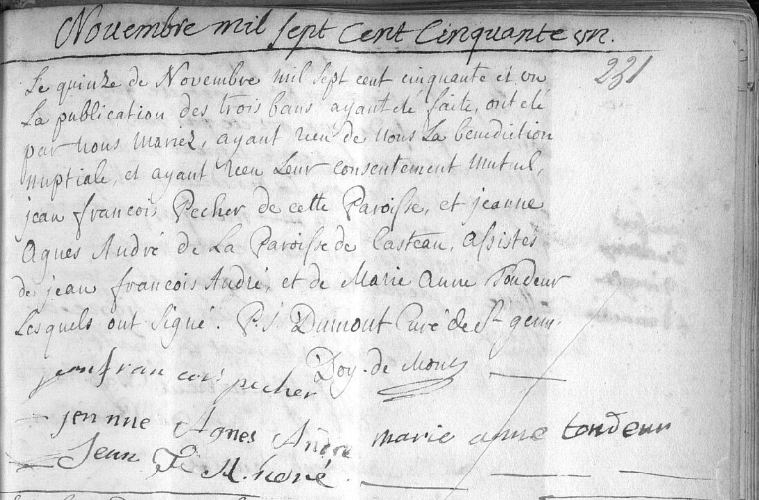 Novembre mil sept cent cinquante un.
231
Le quinze de Novembre mil sept cent cinquante et un
La publication des trois bans ayant eté faite, ont eté
par nous mariez, ayant receu de nous La benediction
nuptiale, et ayant receu Leur consentement mutuel,
jean francois Pecher de cette Paroisse, et jeanne
Agnes André de La Paroisse de Casteau, Assistés
de jean francois André, et de Marie Anne Tondeur
Lesquels ont signé. P. J. Dumont Curé de St germ.
Doy. de Mons
jean francois pecher
jennne Agnes Andre marie anne tondeur
Jean F